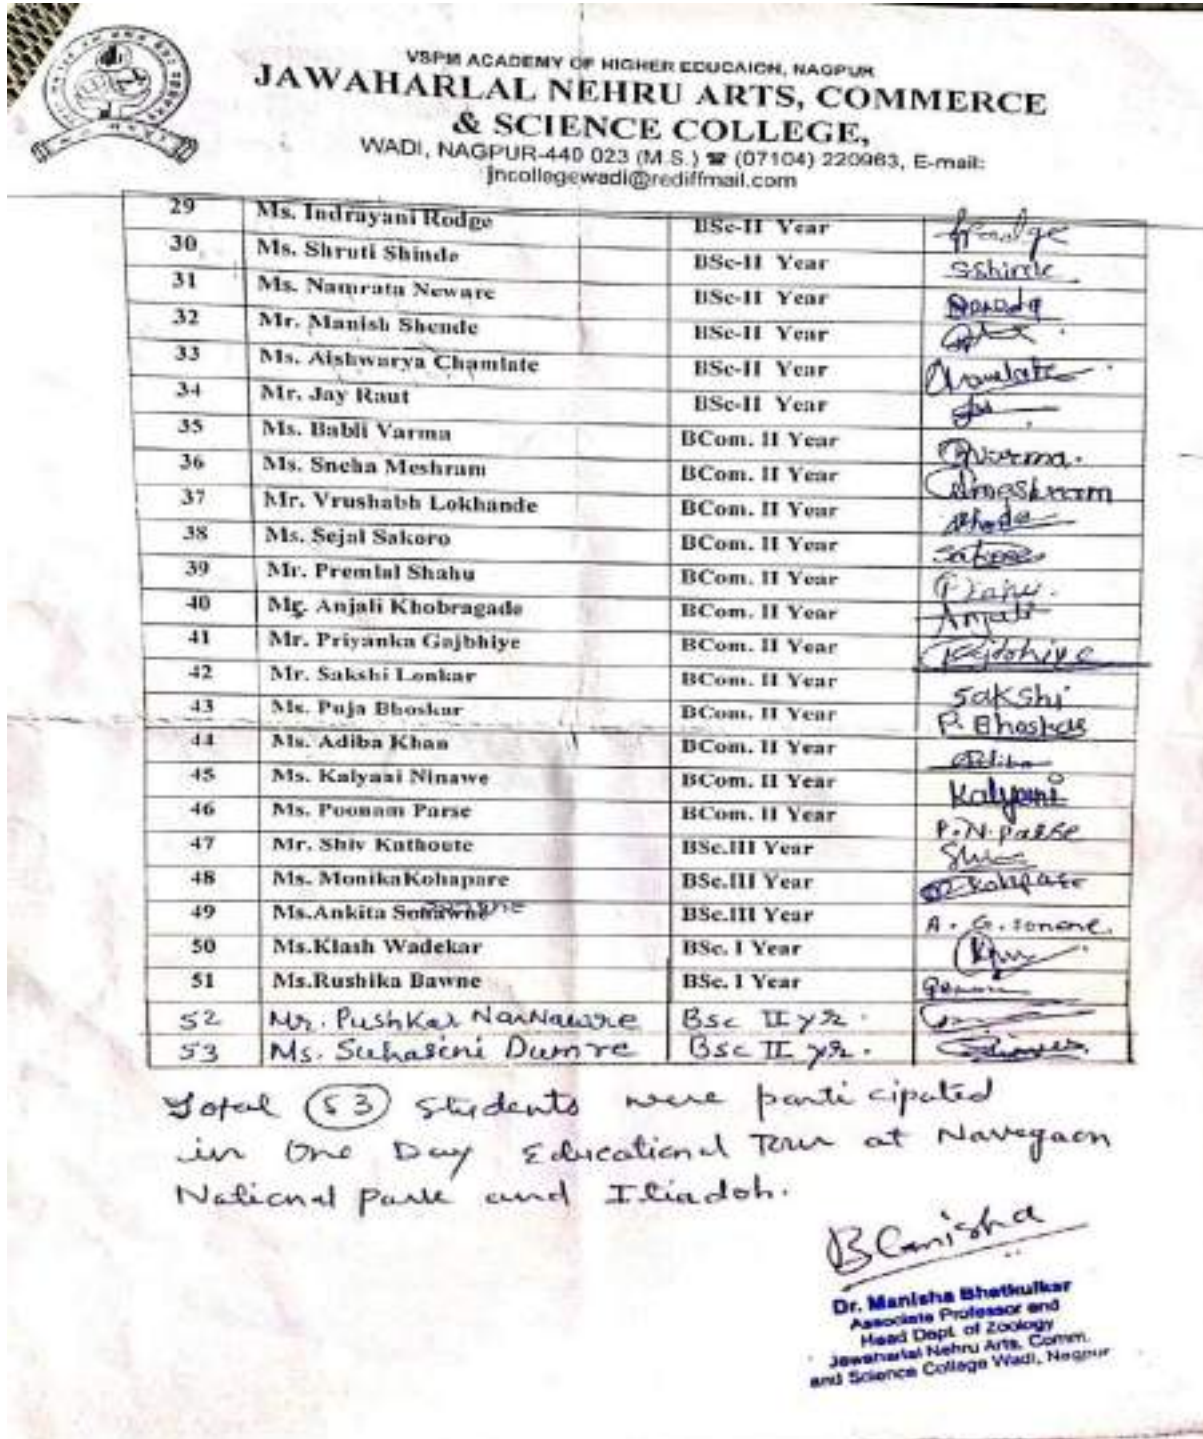 VSPM ACADEMY OF HIGHER EDUCAION, NAGPUR
JAWAHARLAL NEHRU ARTS, COMMERCE
& SCIENCE COLLEGE,
WADI, NAGPUR-440 023 (M.S.) ☎ (07104) 220963, E-mail:
jncollegewadi@rediffmail.com
29 Ms. Indrayani Rodge BSc-II Year
30 Ms. Shruti Shinde BSc-II Year Sshinde
31 Ms. Namrata Neware BSc-II Year
32 Mr. Manish Shende BSc-II Year
33 Ms. Aishwarya Chamlate BSc-II Year Chamlate
34 Mr. Jay Raut BSc-II Year
35 Ms. Babli Varma BCom. II Year
36 Ms. Sneha Meshram BCom. II Year
37 Mr. Vrushabh Lokhande BCom. II Year
38 Ms. Sejal Sakoro BCom. II Year
39 Mr. Premlal Shahu BCom. II Year
40 Mr. Anjali Khobragade BCom. II Year Anjali
41 Mr. Priyanka Gajbhiye BCom. II Year
42 Mr. Sakshi Lonkar BCom. II Year Sakshi
43 Ms. Puja Bhoskar BCom. II Year P. Bhoskar
44 Ms. Adiba Khan BCom. II Year Adiba
45 Ms. Kalyani Ninawe BCom. II Year Kalyani
46 Ms. Poonam Parse BCom. II Year P.N.parse
47 Mr. Shiv Kathoute BSc.III Year
48 Ms. MonikaKohapare BSc.III Year
49 Ms.Ankita BSc.III Year A. G. sonone.
50 Ms.Klash Wadekar BSc. I Year
51 Ms.Rushika Bawne BSc. I Year
52 Mr. Pushkar Narnaware Bsc II yr.
53 Ms. Suhasini Dumre Bsc II yr.
Total 53 Students were participated
in One Day Educational Tour at Navegaon
National park and Itiadoh.
Dr. Manisha Bhatkulkar
Associate Professor and
Head Dept. of Zoology
Jawaharlal Nehru Arts, Comm.
and Science College Wadi, Nagpur